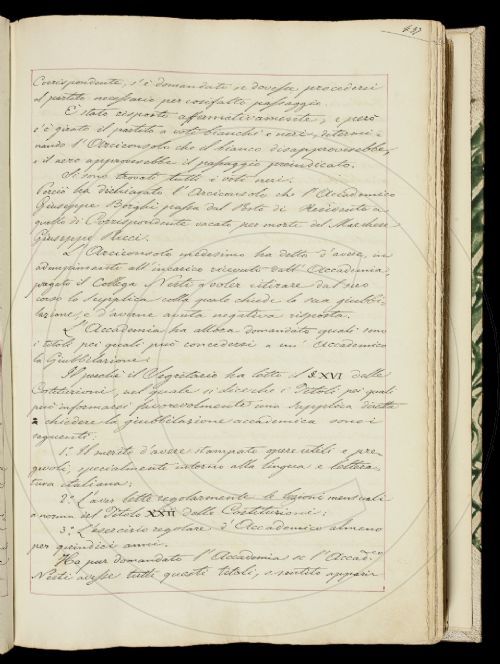 437
Corrispondente, s'è domandato se dovesse procedersi
al partito necessario per cosifatto passaggio.
È stato risposto affermativamente, e però
s'è girato il partito a voti bianchi e neri, determi-
nando l'Arciconsolo che il bianco disapproverebbe,
e il nero approverebbe il passaggio preindicato.
Si sono trovati tutti i voti neri.
Perciò ha dichiarato l'Arciconsolo che l'Accademico
Giuseppe Borghi passa dal Posto di Residente a
quello di Corrispondente vacato per morte del Marchese
Giuseppe Pucci.
L'Arciconsolo medesimo ha detto d'avere, in
adempimento all'incarico ricevuto dall'Accademia,
pregato il Collega Nesti a voler ritirare dal suo
corso la Supplica colla quale chiede la sua giubbi-
lazione, e d'averne avuta negativa risposta.
L'Accademia ha allora domandato quali sono
i titoli pei quali può concedersi a un' Accademico
la Giubbilazione.
Il perchè il Segretario ha letto il § XVI delle
Costituzioni, nel quale si dice che i Titoli pei quali
può informarsi favorevolmente una supplica diretta
a chiedere la giubbilazione accademica sono i
seguenti:
1.° Il merito d'avere stampato opere utili e pre-
gevoli, specialmente intorno alla lingua e lettera-
tura italiana;
2.° L'aver lette regolarmente le lezioni mensuali
a norma del Titolo XXII delle Costituzioni;
3.° L'esercizio regolare d'Accademico almeno
per quindici anni.
Ha pur domandato l'Accademia se l'Accad.co
Nesti avesse tutti questi titoli, e sentito